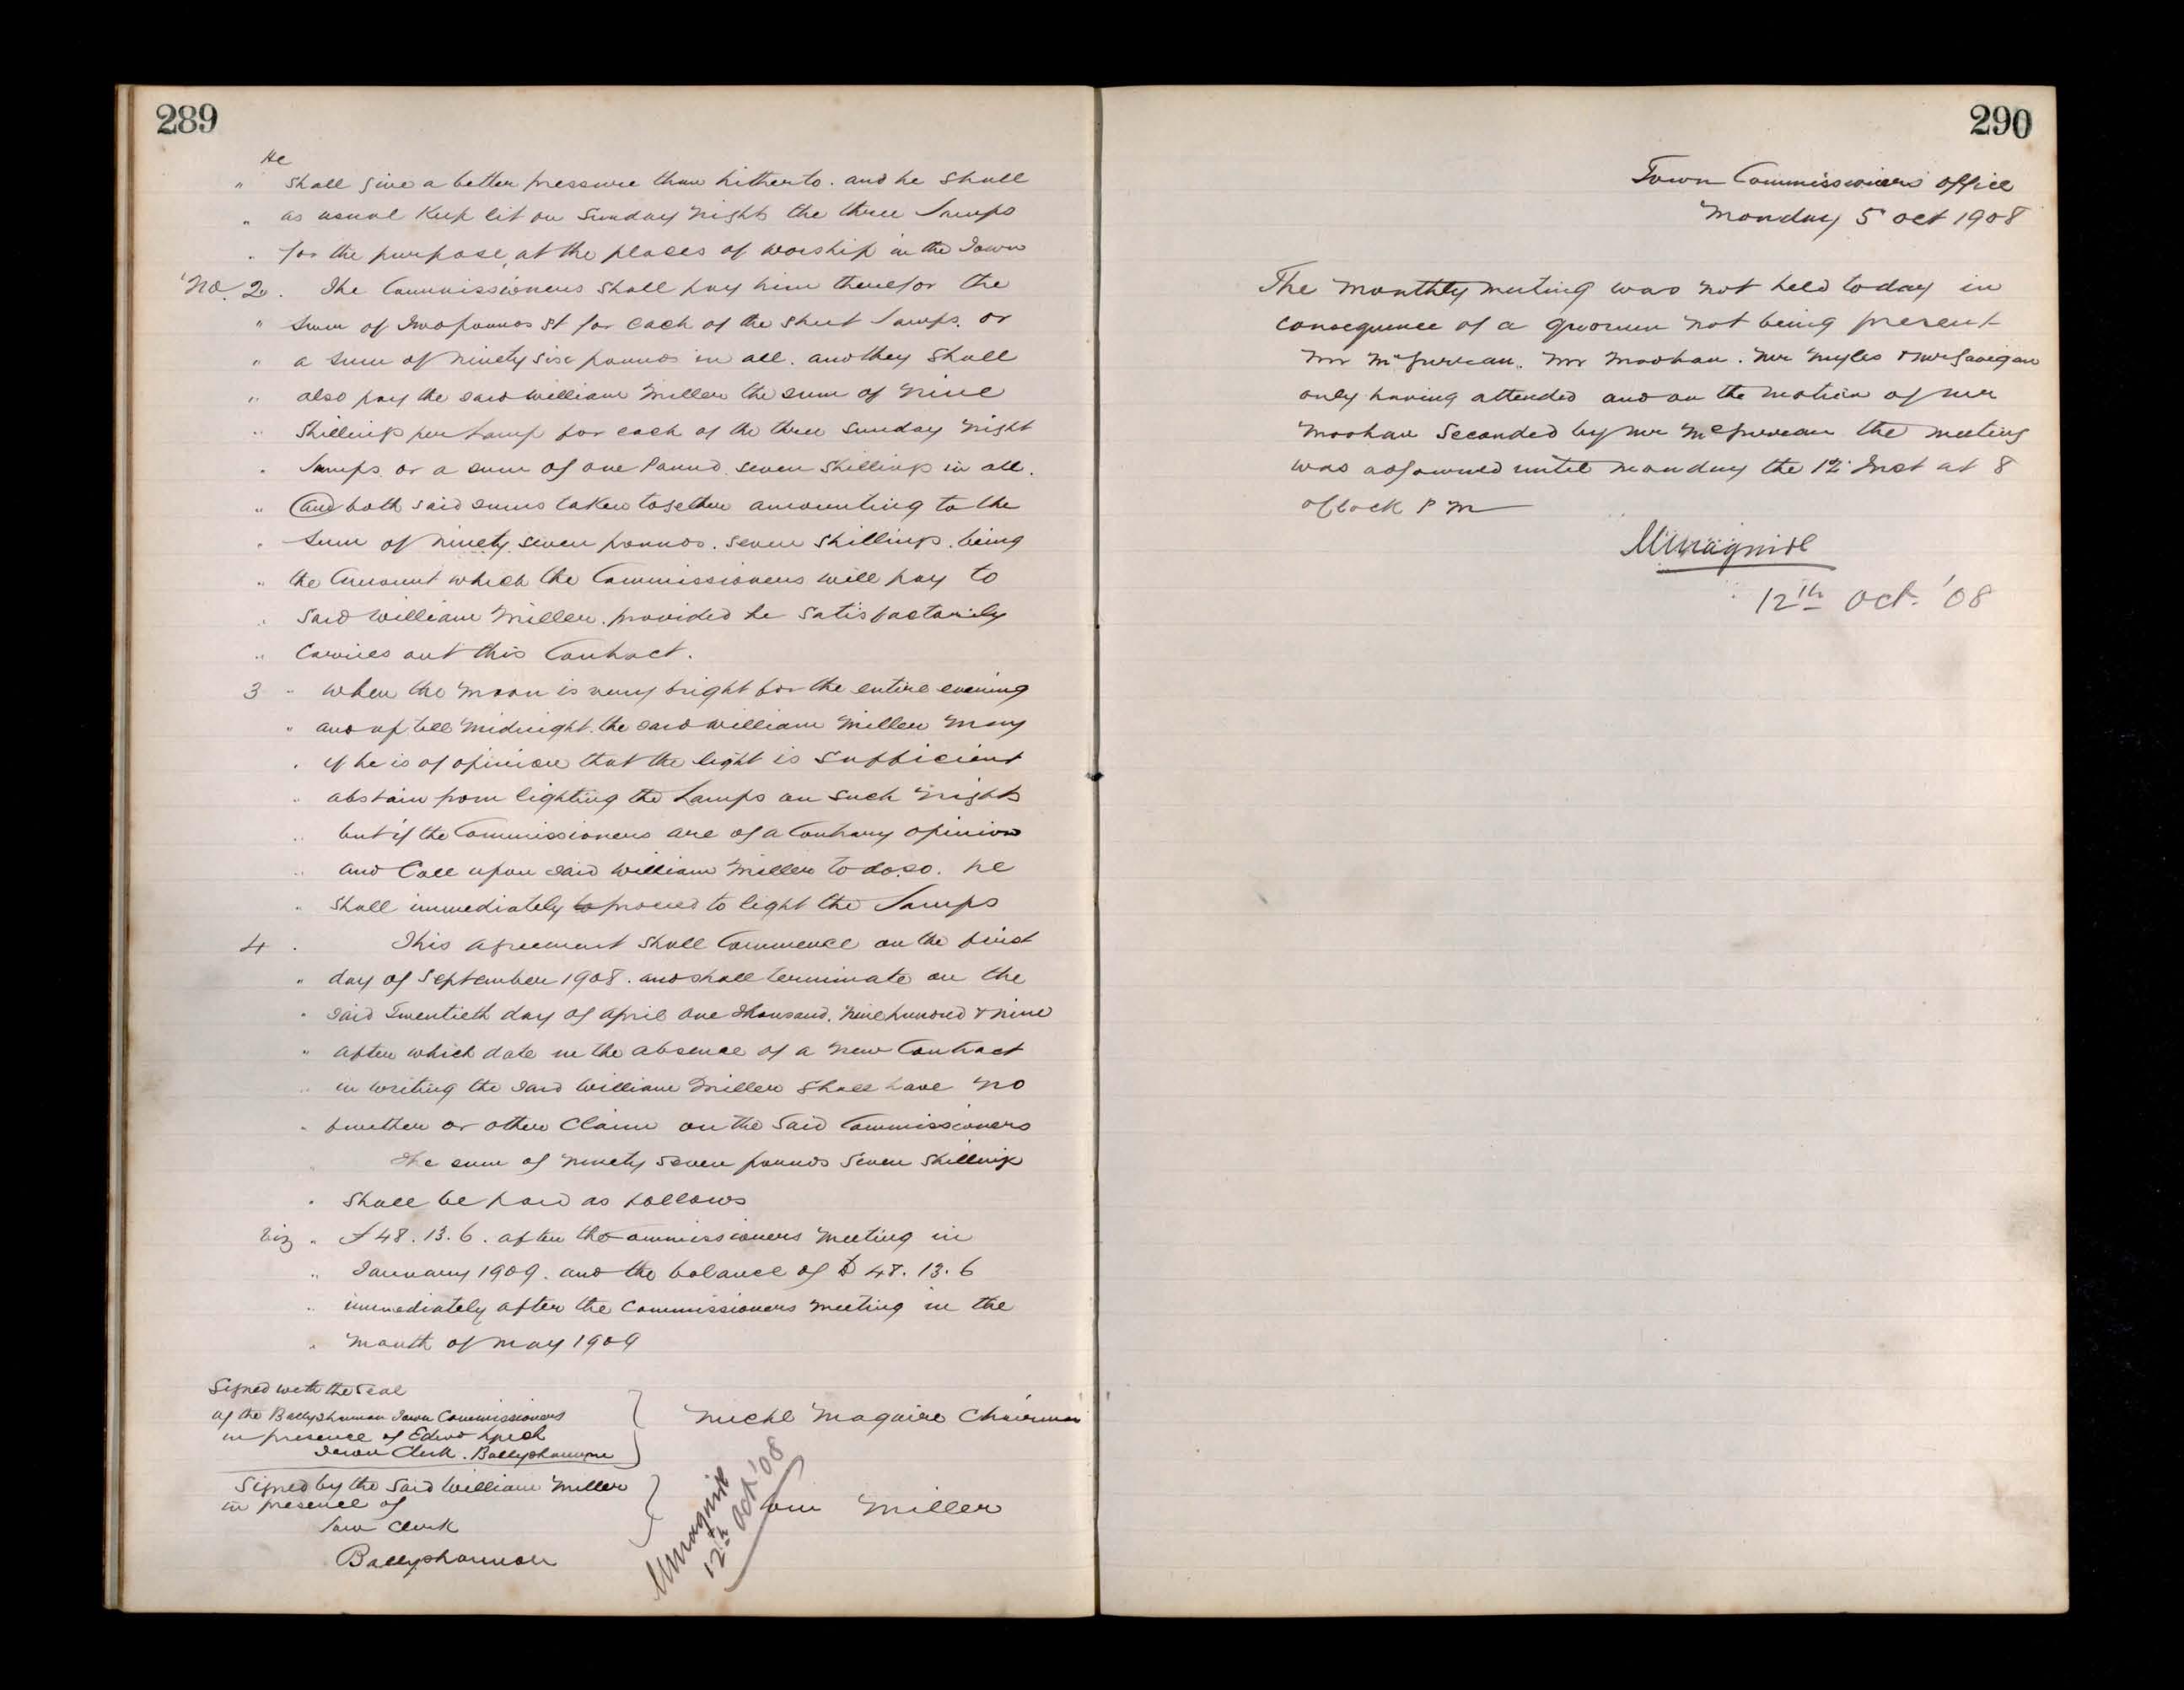 289
He
" shall give a better pressure than hitherto. and he shall
" as usual Keep lit on Sunday nights the three Lamps
" for the purpose, at the places of worship in the Town
"No. 2. The Commissioners shall pay him therefor the
" sum of Two pounds St for each of the street Lamps. or
" a sum of ninety six pounds in all. and they shall
" also pay the said William Miller the sum of nine
" shillings per Lamp for each of the three Sunday night
" Lamps. or a sum of one Pound. seven shillings in all.
" And both said sums taken together amounting to the
" sum of ninety seven pounds. seven shillings. being
" the Amount which the Commissioners will pay to
" said William Miller. provided he satisfactorily
" Carries out this Contract.
3 " when the moon is very bright for the entire evening
" and up till midnight. the said William Miller may
" if he is of opinion that the light is sufficient
" abstain from lighting the Lamps on such nights
" but if the Commissioners are of a Contrary opinion
" and Call upon said William Miller to do so. he
" shall immediately to proceed to light the Lamps
4 " This agreement shall Commence on the first
" day of September 1908. and shall terminate on the
" said Twentieth day of april one thousand. nine hundred & nine
" after which date in the absence of a new Contract
" in writing the said William Miller shall have no
" further or other Claim on the said Commissioners
" The sum of ninety seven pounds seven shillings
" shall be paid as follows
Viz " £48.13.6. after the ommissioners meeting in
" January 1909. and the balance of £ 48.13.6
" immediately after the Commissioners meeting in the
" month of may 1909
Signed with the seal
of the Ballyshannon Town Commissioners
in presence of Edwd Lynch
Town Clerk. Ballyshannon
Michl Maguire Chairman
Signed by the said William Miller
in presence of
Town Clerk
Ballyshannon
Wm Miller
MMaguire
12th Oct '08
290
Town Commissioners' office
Monday 5 oct 1908
The monthly meeting was not held today in
consequence of a quorum not being present
Mr Moohan. Mr Myles &
only having attended and on the motion of Mr
Moohan Seconded by Mr the meeting
was adjourned until monday the 12 Inst at 8
oclock P m
MMaguire
12th Oct. '08